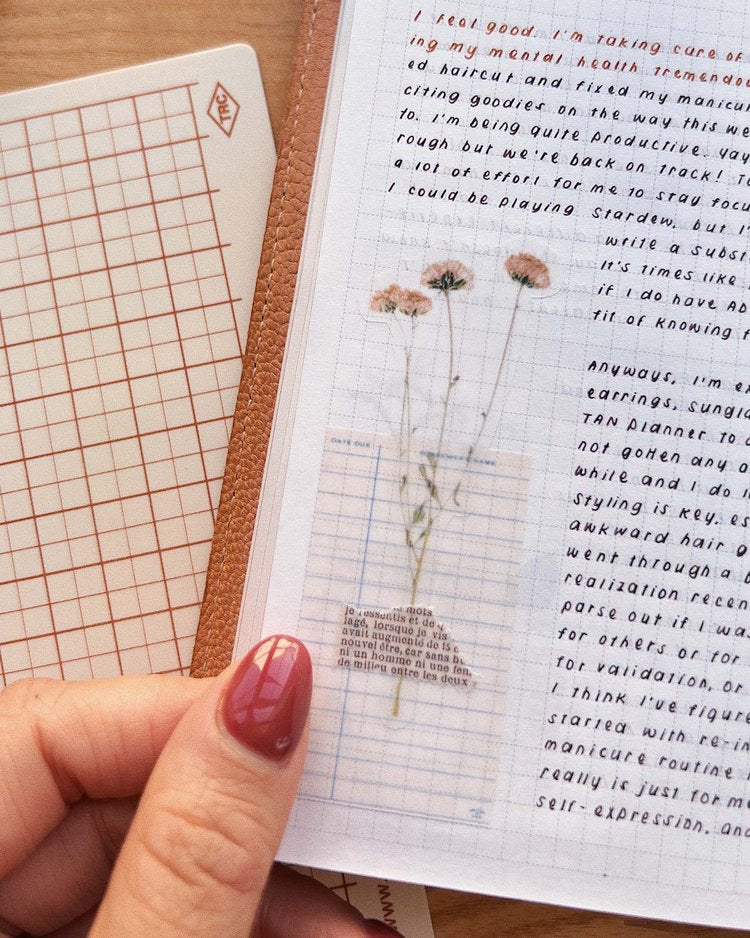 I feel good. I'm taking care of
ing my mental health tremendou
ed haircut and fixed my manicur
citing goodies on the way this we
to. I'm being quite productive. Yay
rough but we're back on track! To
a lot of effort for me to stay focu
I could be playing Stardew, but I'
write a subst
It's times like
if I do have AD
fit of knowing t
Anyways, I'm ex
earrings, sungla
TAN planner to
not gotten any a
while and I do l
styling is key, es
awkward hair g
went through a b
realization recen
parse out if I wa
for others or for
for validation, or
I think I've figure
started with re-in
manicure routine
really is just for me
self-expression, and
TRC
DATE DUE
mots
je ressentis et de
lagé, lorsque je vis
avait augmenté de 15
nouvel être, car sans
ni un homme ni une fem,
de milieu entre les deux